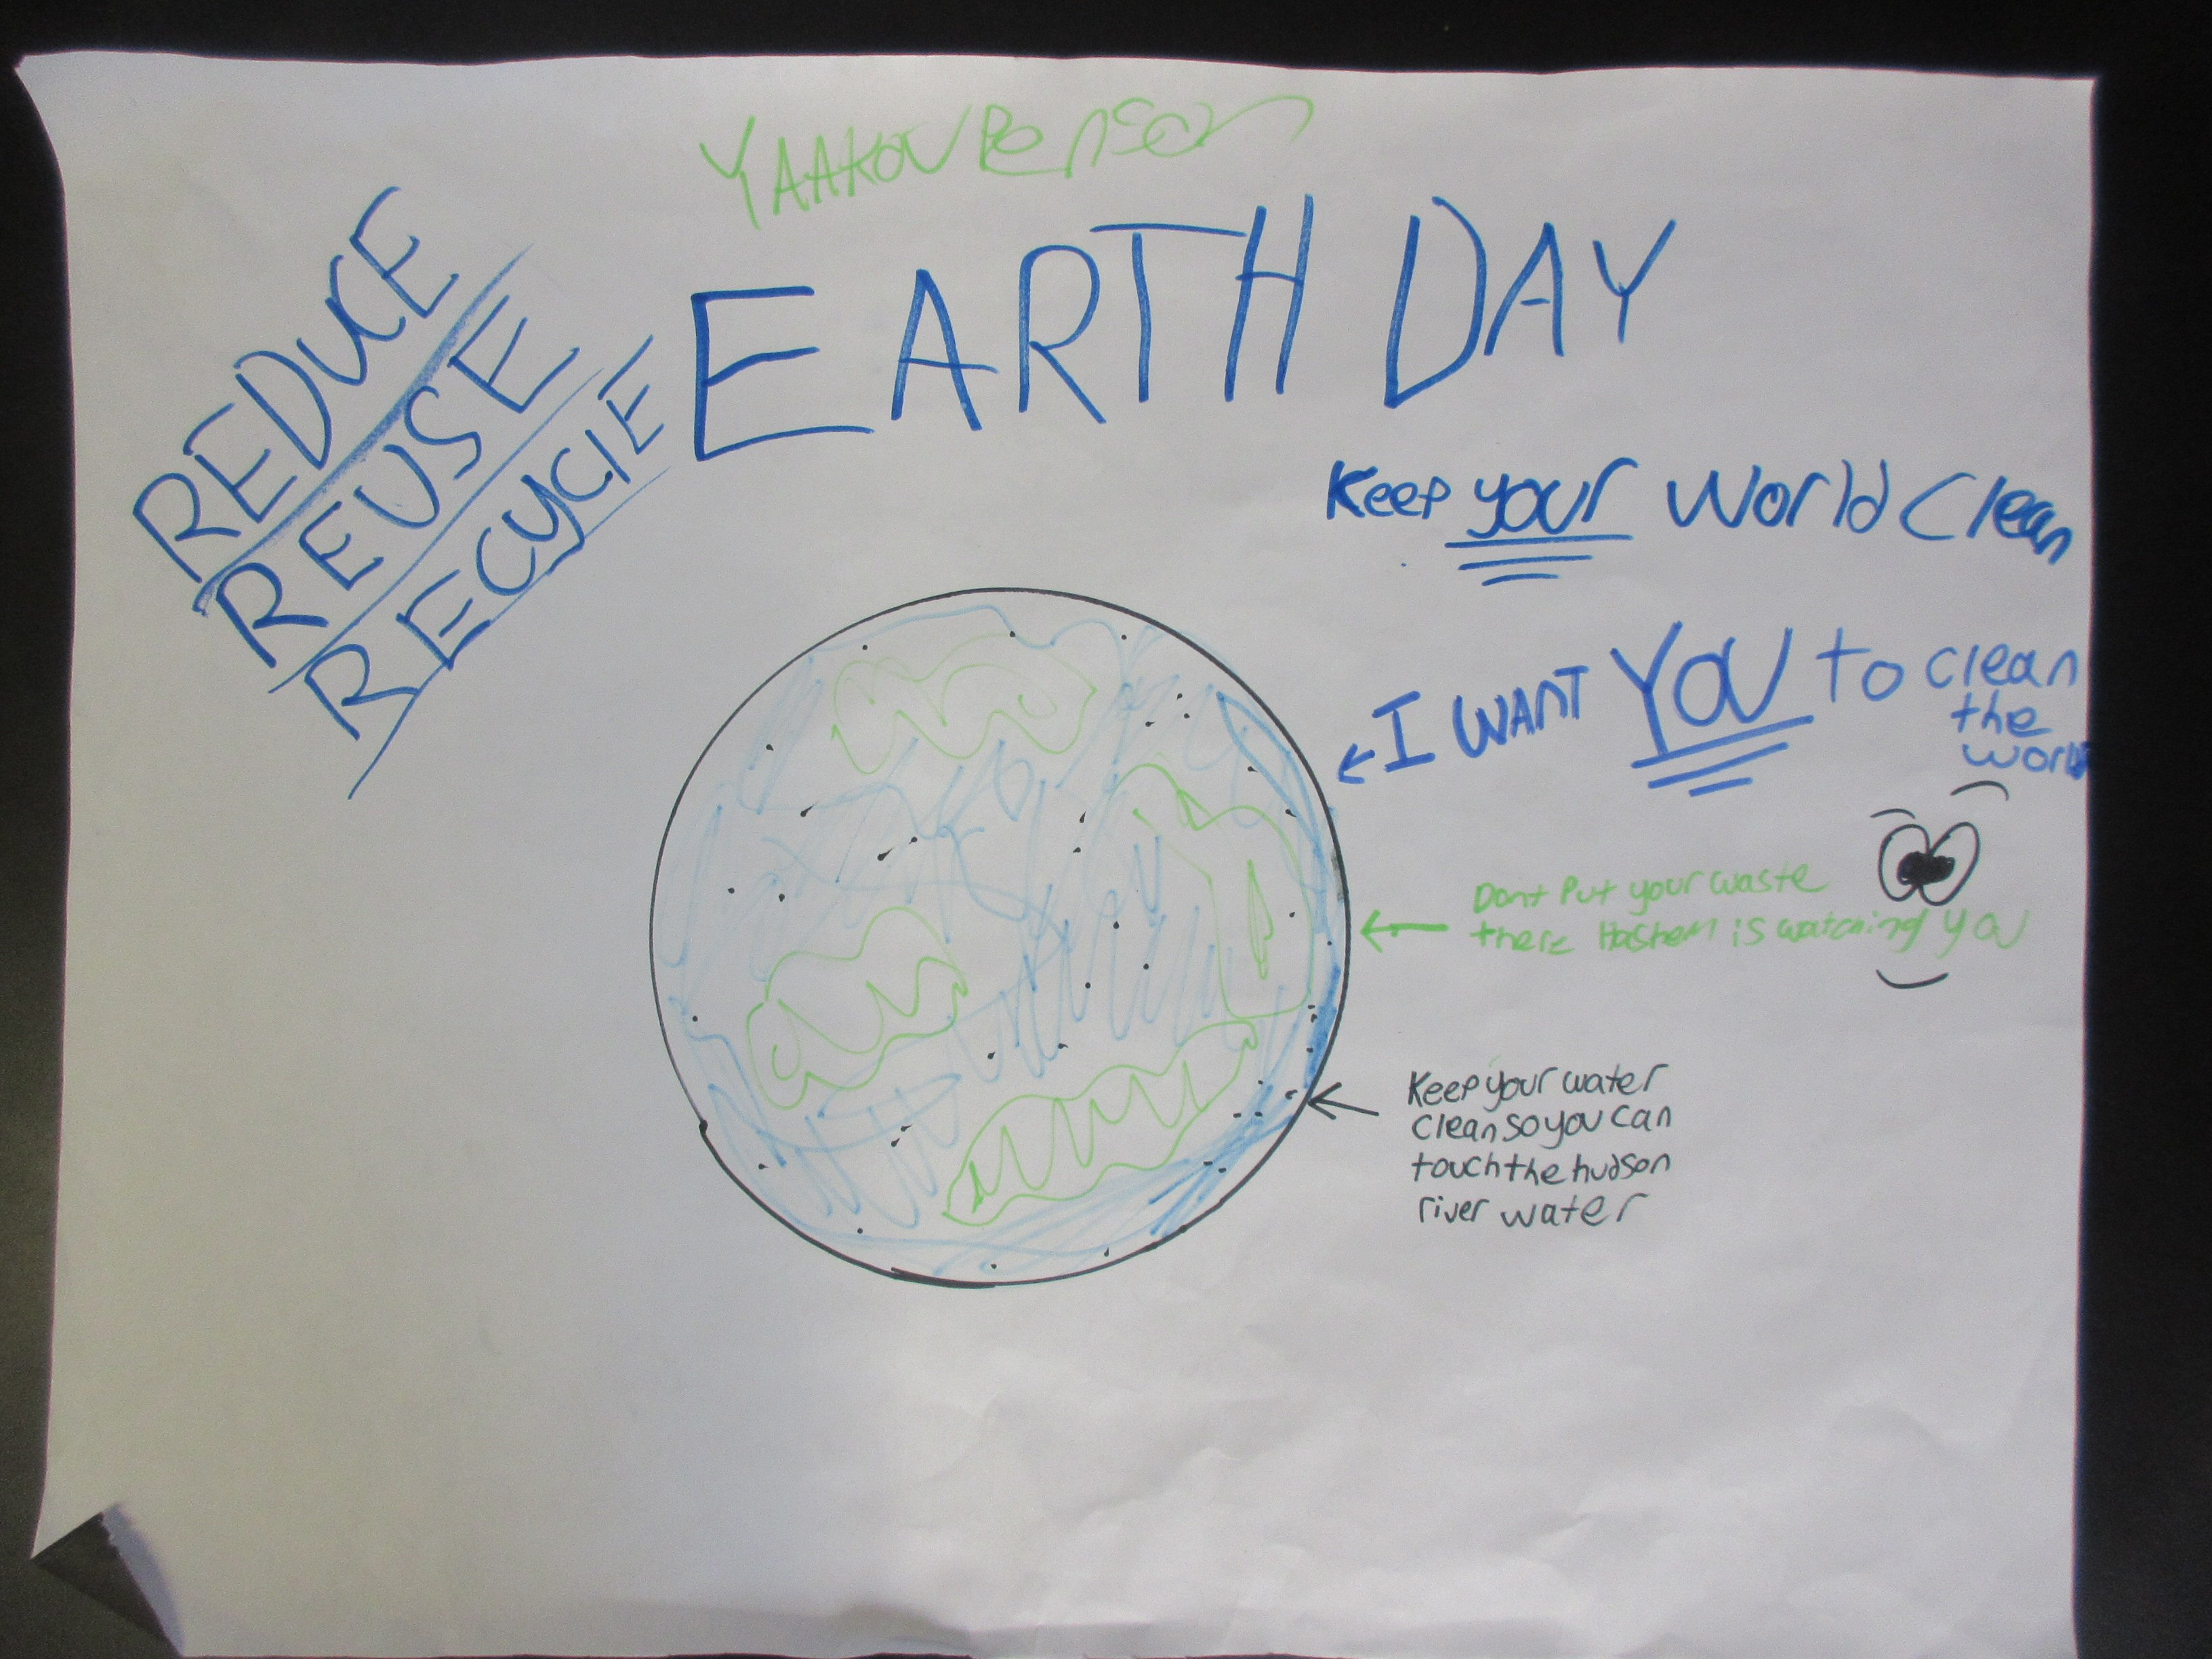 YAAKOV Benson
EARTH DAY
REDUCE
REUSE
RECYClE
Keep your World Clean
I WAnT YOU to clean
the
world
Dont Put your waste
there HasheM is watching you
Keep your water
clean so you can
touch the hudson
river water